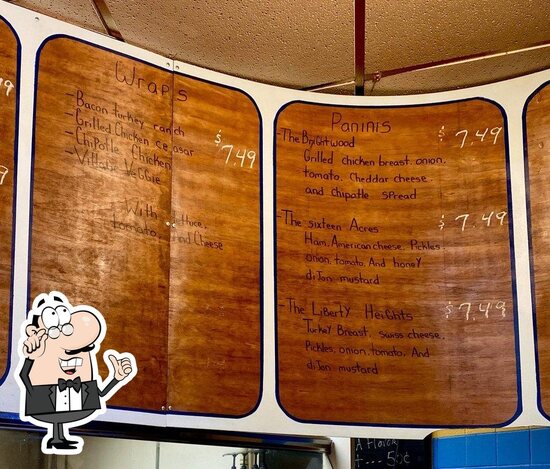 Wraps
-Bacon turkey ranch
-Grilled Chicken ceasar
-Chipotle Chicken
-Village Veggie
$7.49
With lettuce,
tomato, and Cheese
Paninis
-The Brigitwood $7.49
Grilled chicken breast, onion,
tomato, Cheddar cheese,
and Chipotle spread
-The Sixteen Acres $7.49
Ham, American cheese, Pickles,
onion, tomato, And honey
diJon mustard
-The Liberty Heights $7.49
Turkey Breast, swiss cheese,
Pickles, onion, tomato, And
diJon mustard
A flavor
50¢